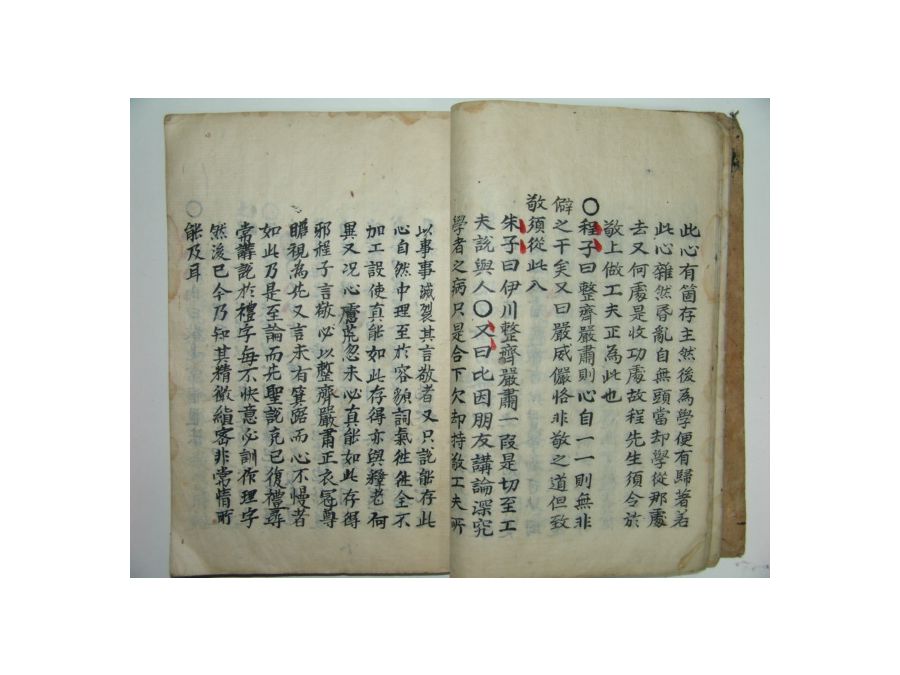 此心有箇存主然後為學便有歸著若
此心雜然昏亂自無頭當却學從那處
去又何處是收功處故程先生須令於
敬上做工夫正為此也
○程子曰整齊嚴肅則心自一一則無非
僻之干矣又曰嚴威儼恪非敬之道但致
敬須從此入
朱子曰伊川整齊嚴肅一段是切至工
夫說與人○又曰比因朋友講論深究
學者之病只是合下欠却持敬工夫所
以事事滅裂其言敬者又只說能存此
心自然中理至於容貌詞氣徃徃全不
加工設使真能如此存得亦與釋老何
異又况心慮荒忽未必真能如此存得
邪程子言敬必以整齊嚴肅正衣冠尊
瞻視為先又言未有箕踞而心不慢者
如此乃是至論而先聖說克己復禮尋
常講說於禮字每不快意必訓作理字
然後已今乃知其精微縝密非常情所
○能及耳